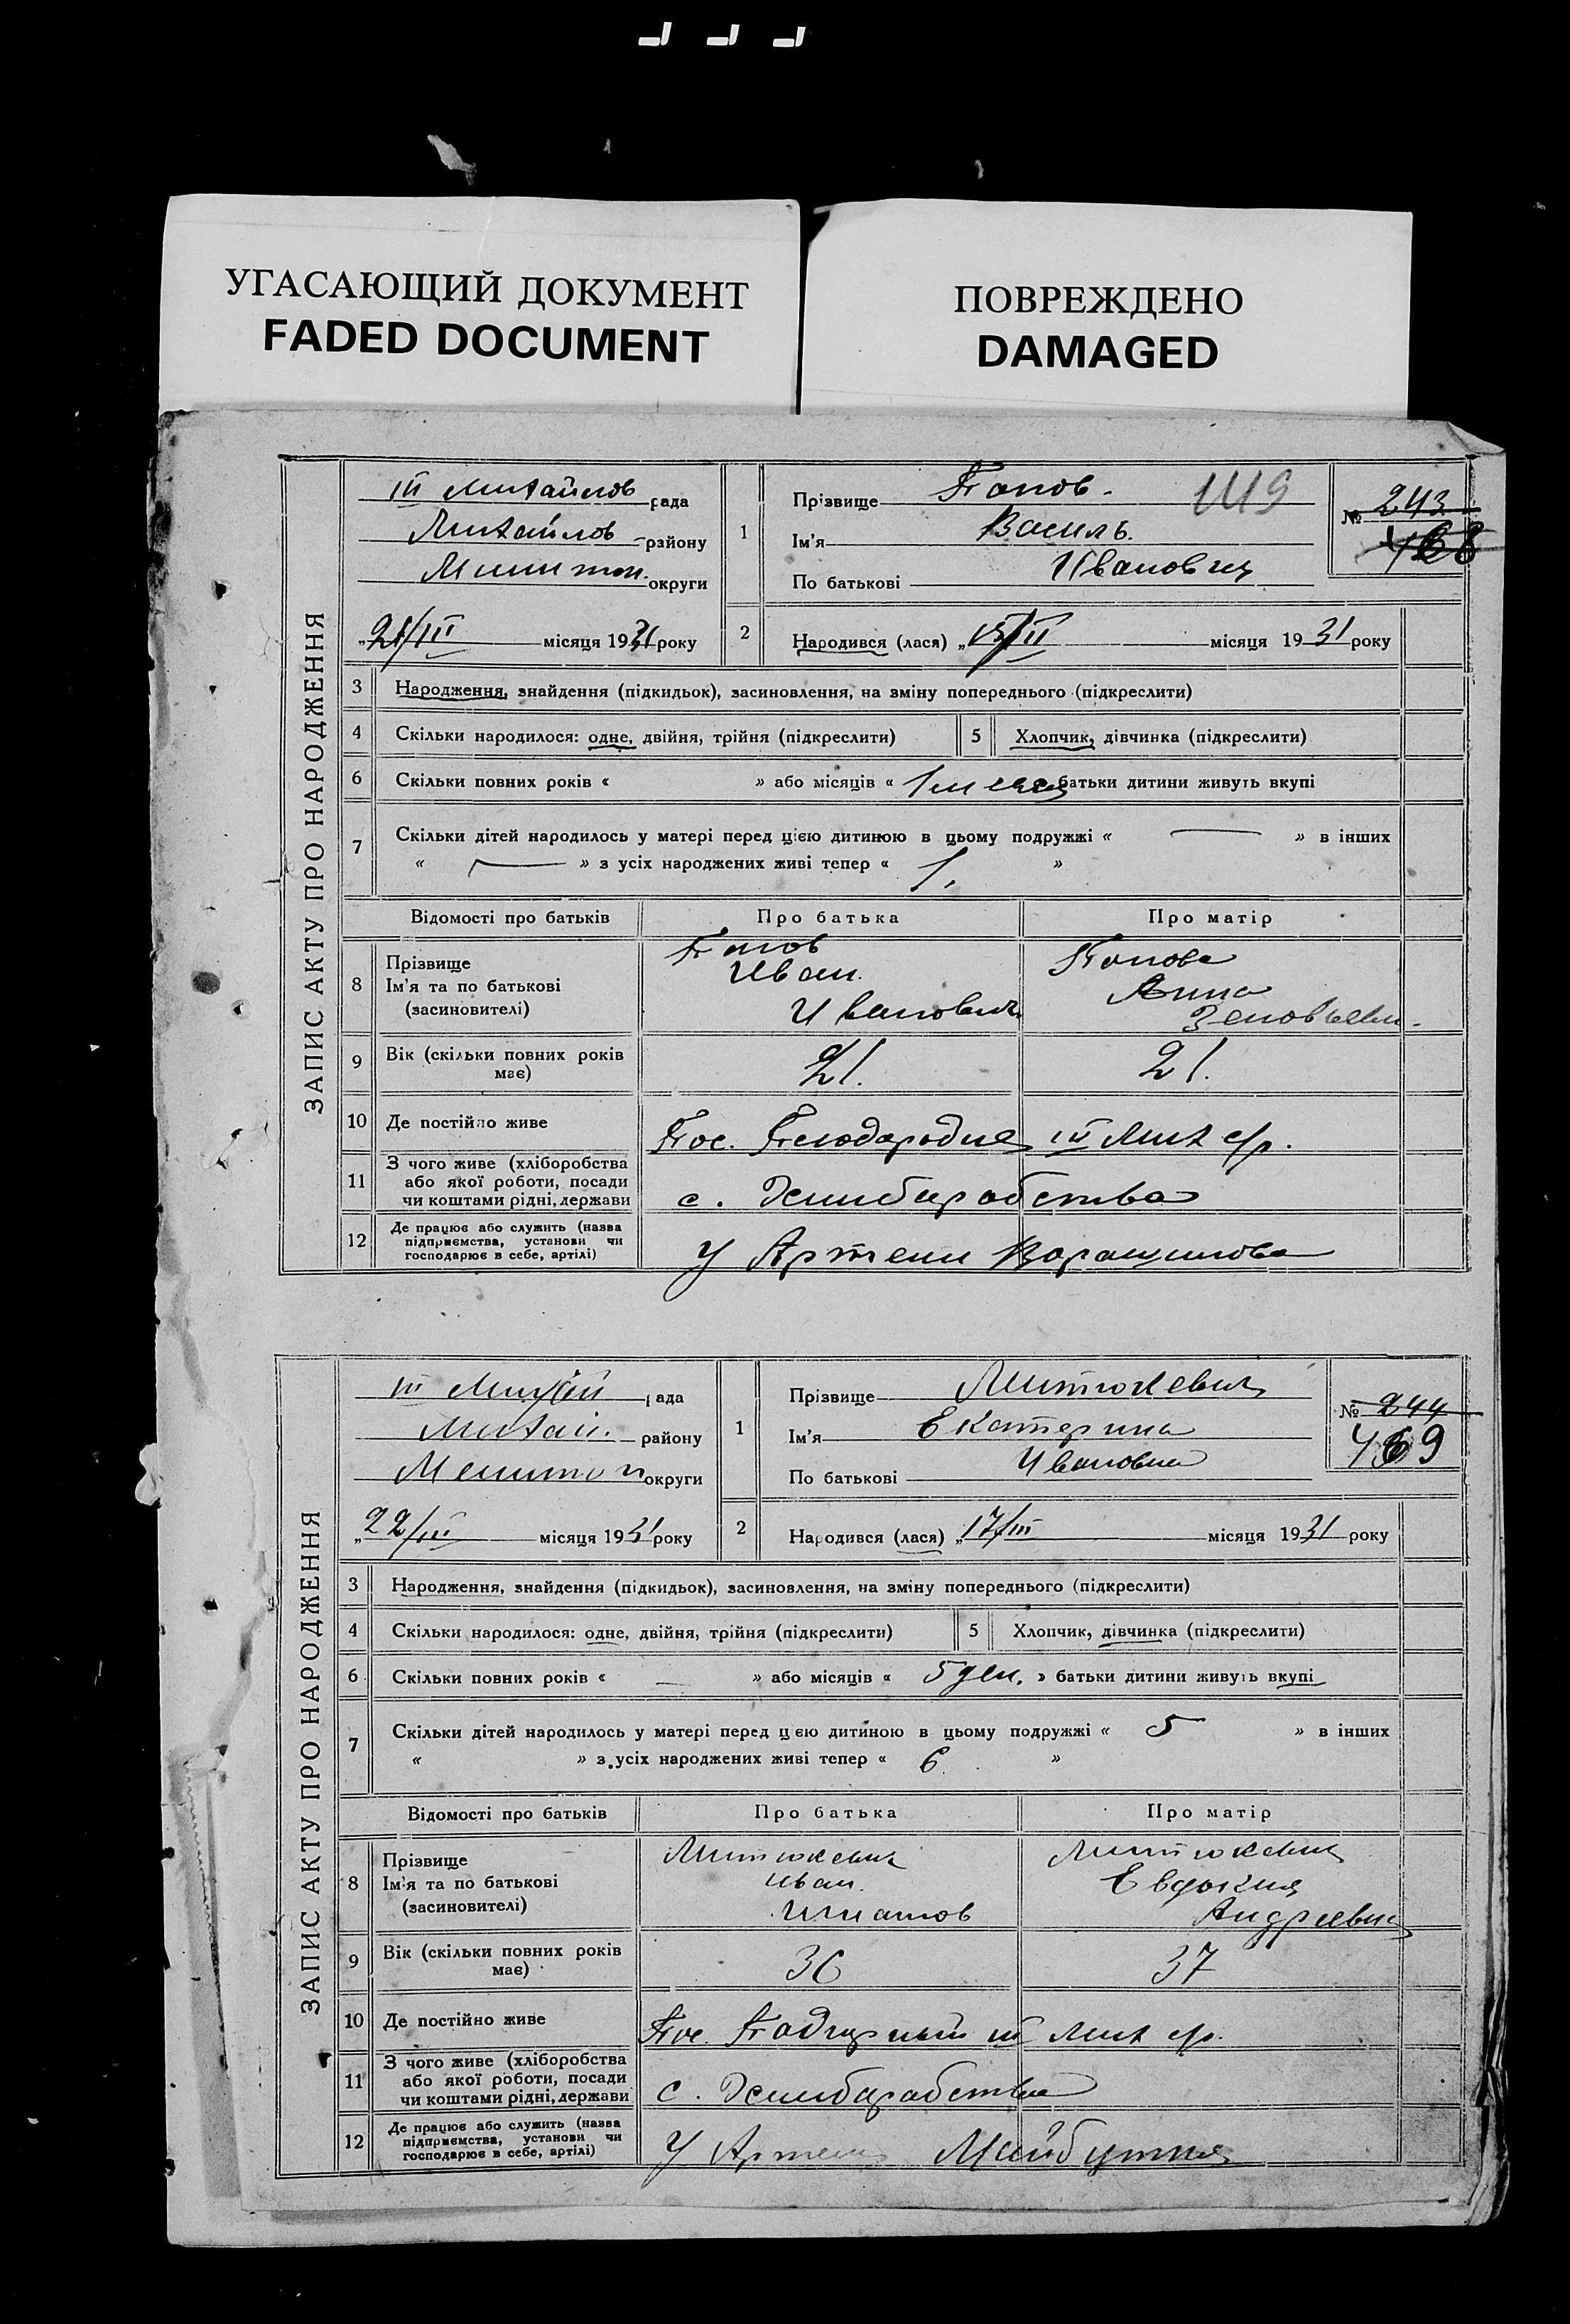 УГАСАЮЩИЙ ДОКУМЕНТ
FADED DOCUMENT
ПОВРЕЖДЕНО
DAMAGED
ЗАПИС АКТУ ПРО НАРОДЖЕННЯ
III Михайлов рада
Михайлов району
округи
21/III місяця 1931 року
1 Прізвище Попов.
Ім'я Василь.
По батькові Иванович
№ 243
468
2 Народився (лася) „15/II місяця 1931 року
3 Народження, знайдення (підкидьок), засиновлення, на зміну попереднього (підкреслити)
4 Скільки народилося: одне, двійня, трійня (підкреслити) 5 Хлопчик, дівчинка (підкреслити)
6 Скільки повних років « » або місяців « 1 батьки дитини живуть вкупі
7 Скільки дітей народилось у матері перед цією дитиною в цьому подружжі « — » в інших
« — » з усіх народжених живі тепер « 1. »
Відомості про батьків Про батька Про матір
8 Прізвище Ім'я та по батькові (засиновителі)
Попов Иван. Иванович
Попова Анна
9 Вік (скільки повних років має) 21. 21.
10 Де постійно живе Пос. III Мих с/р.
11 З чого живе (хліборобства або якої роботи, посади чи коштами рідні, держави с.
12 Де працює або служить (назва підприємства, установи чи господарює в себе, артілі) У Артели
ЗАПИС АКТУ ПРО НАРОДЖЕННЯ
III рада
Михай. району
округи
„22/III місяця 1931 року
1 Прізвище Митюкевич
Ім'я Екатерина
По батькові Ивановна
№ 244
469
2 Народився (лася) „17/III місяця 1931 року
3 Народження, знайдення (підкидьок), засиновлення, на зміну попереднього (підкреслити)
4 Скільки народилося: одне, двійня, трійня (підкреслити) 5 Хлопчик, дівчинка (підкреслити)
6 Скільки повних років « — » або місяців « 5 ден. » батьки дитини живуть вкупі
7 Скільки дітей народилось у матері перед цією дитиною в цьому подружжі « 5 » в інших
« » з усіх народжених живі тепер « 6 »
Відомості про батьків Про батька Про матір
8 Прізвище Ім'я та по батькові (засиновителі)
Митюкевич Иван.
Митюкевич Евдокия
9 Вік (скільки повних років має) 36 37
10 Де постійно живе Пос. III Мих с/р.
11 З чого живе (хліборобства або якої роботи, посади чи коштами рідні, держави с.
12 Де працює або служить (назва підприємства, установи чи господарює в себе, артілі) У Артели Майбутня